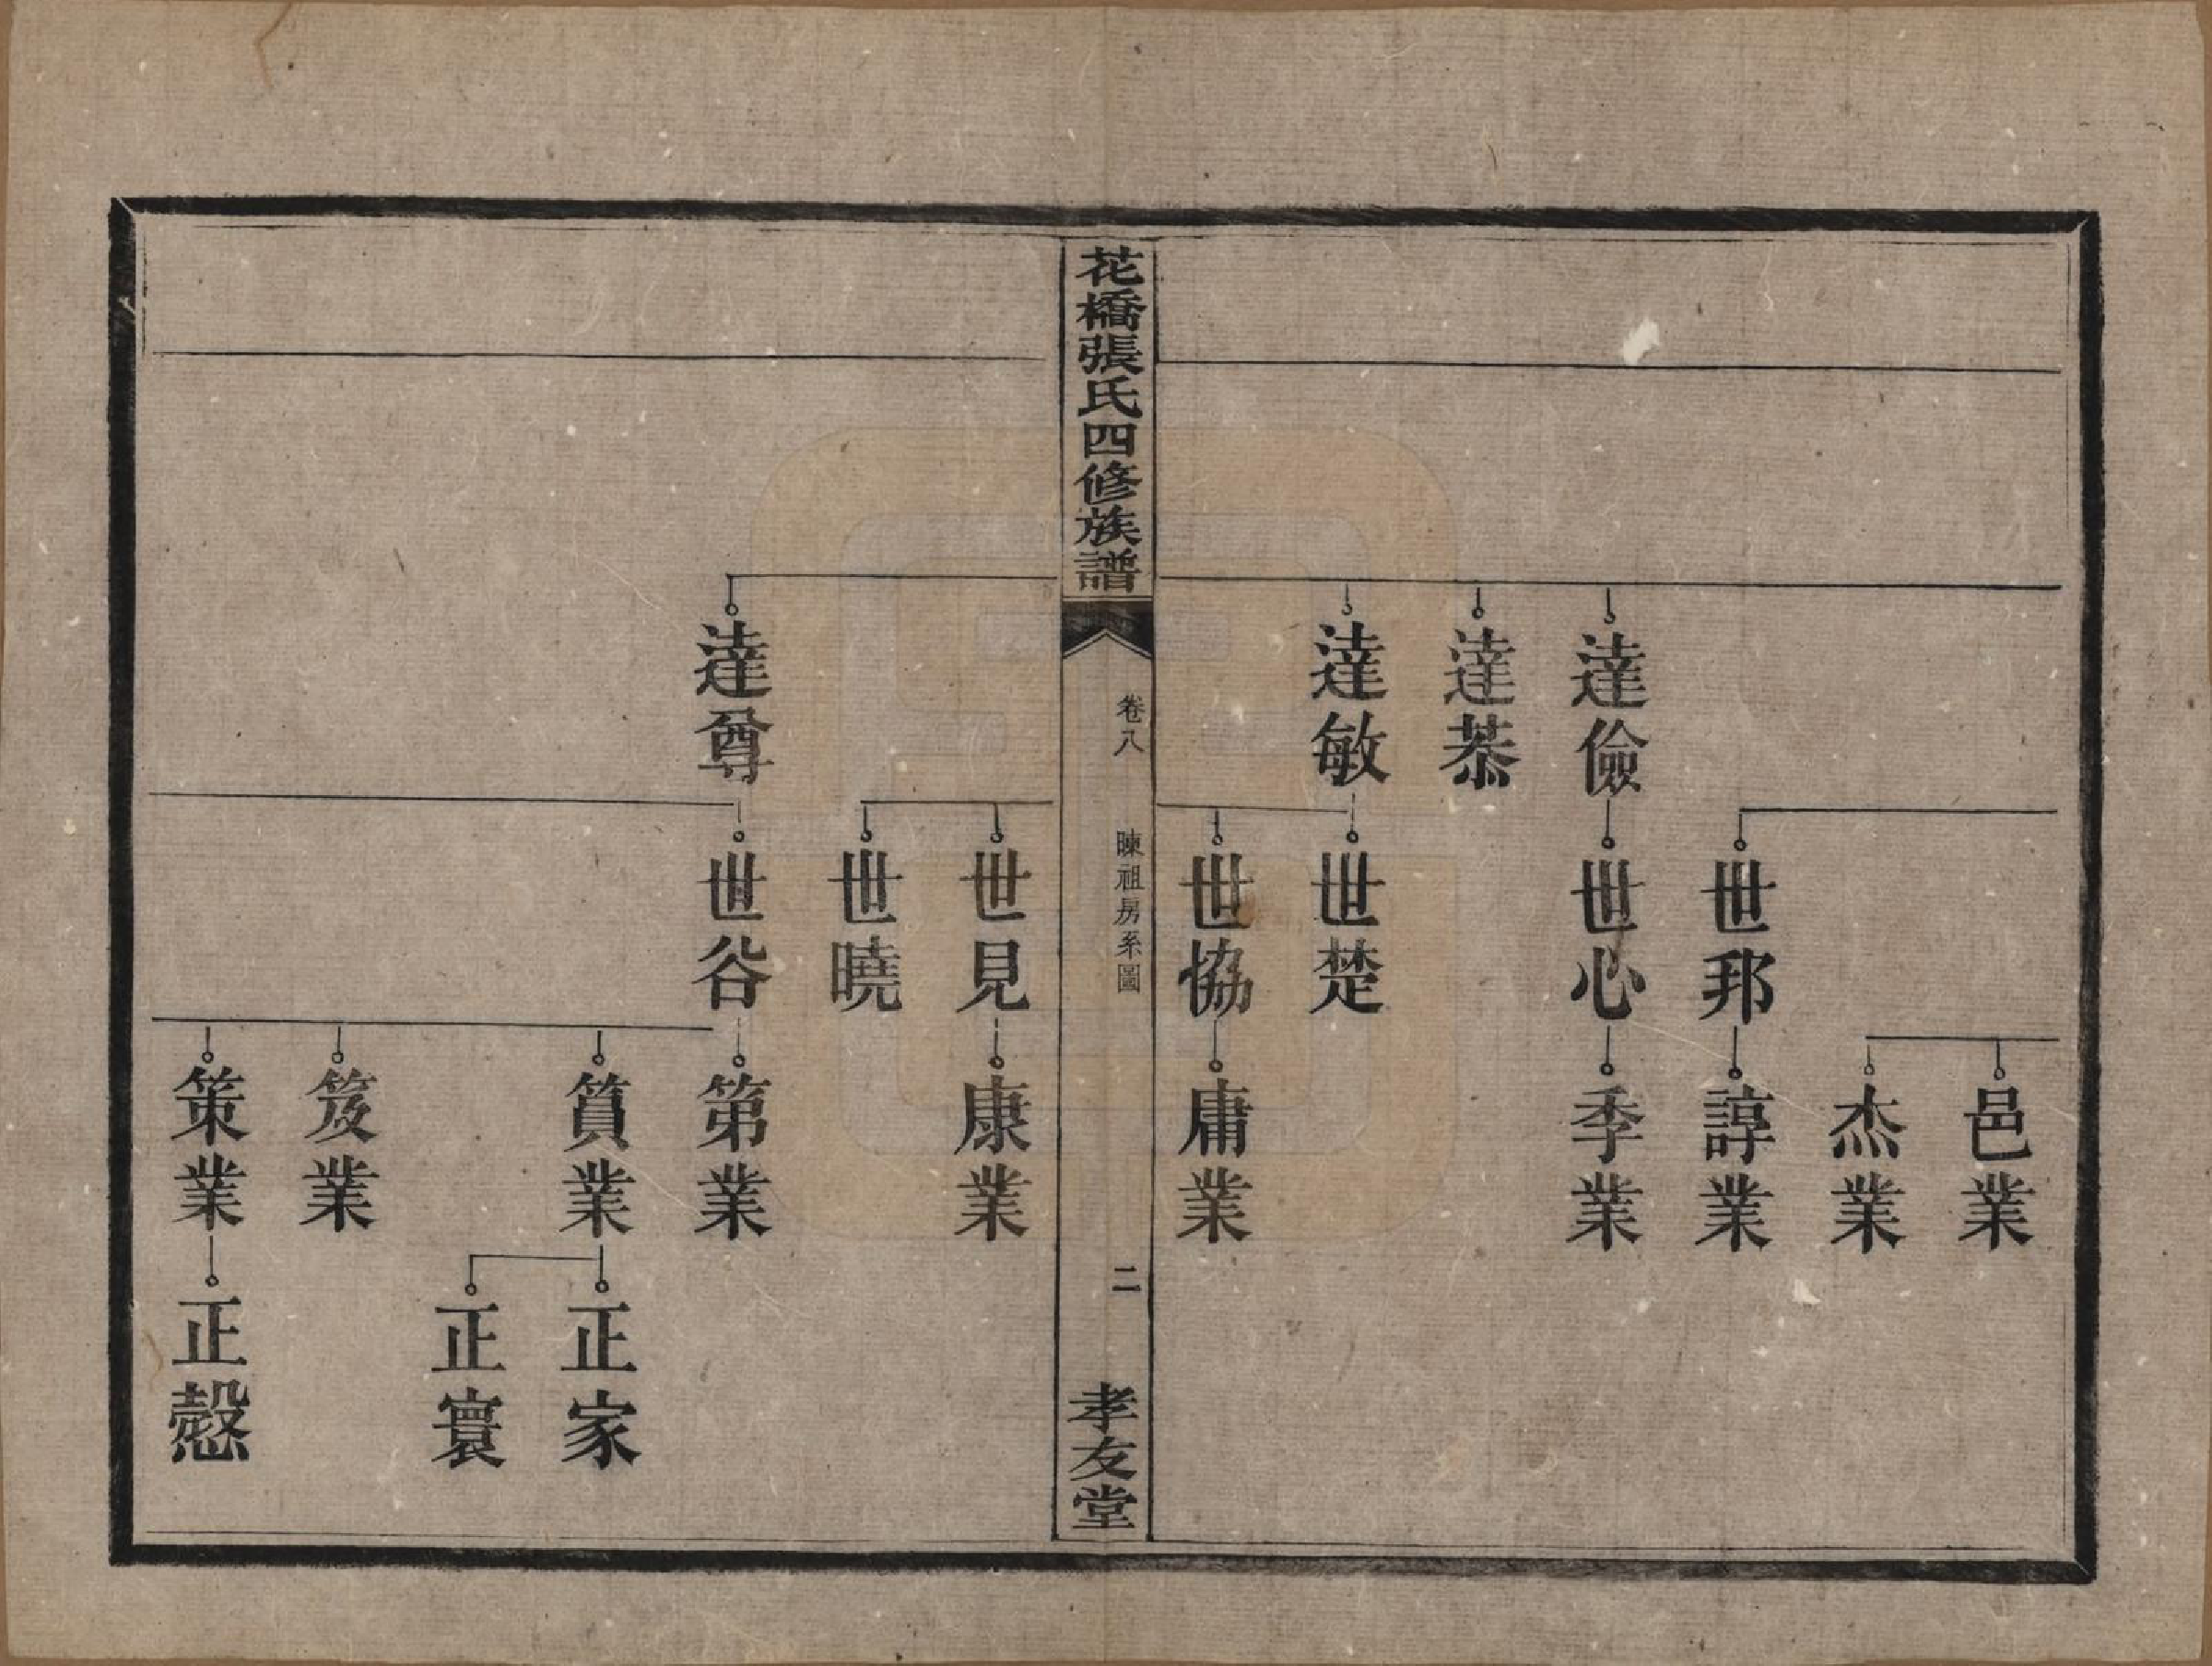 邑業
杰業
世邦
諄業
達儉
世心
季業
達恭
達敏
世楚
世協
庸業
花橋張氏四修族譜
卷八
暕祖房系圖
二
孝友堂
世見
康業
世曉
達尊
世谷
第業
篔業
正家
正寰
笈業
策業
正慤